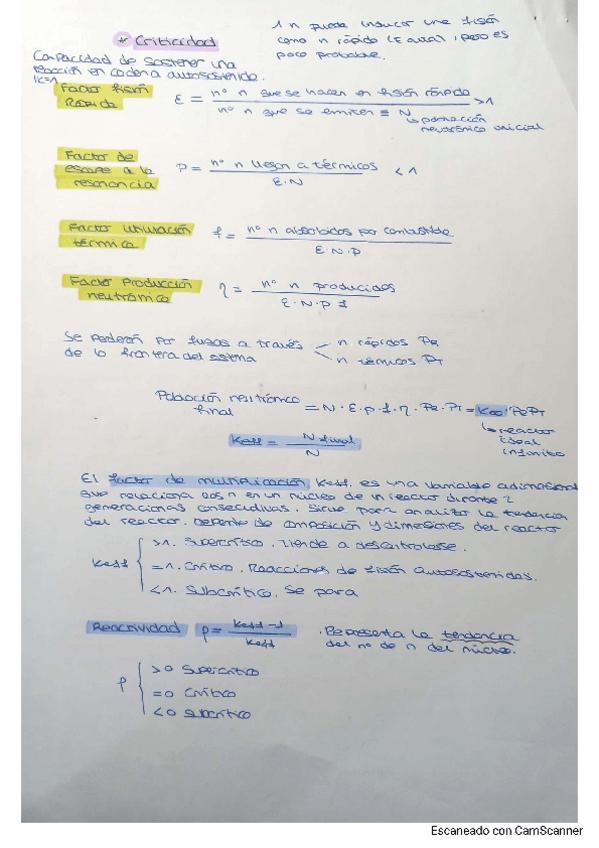 * Criticidad
1 n puede inducir una fisión
como n rápido (E alta), pero es
poco probable.
Capacidad de sostener una
reacción en cadena autosostenida.
K=1
Factor fisión
Rápida
ε = nº n que se nacen en fisión rápida >1
nº n que se emiten = N
↳ población
neutrónica inicial
Factor de
escape a la
resonancia
p = nº n llegan a térmicos < 1
ε · N
Factor utilización
térmica
f = nº n absorbidos por combustible
ε · N · p
Factor Producción
neutrónico
η = nº n producidos
ε · N · p f
Se perderán por fugas a través
de la frontera del sistema
n rápidos PR
n térmicos PT
Población neutrónico
final
= N · ε · p · f · η · PR · PT = K∞ · PR PT
↳ reactor
ideal
infinito
Keff = N final
N
El factor de multiplicación Keff. es una variable adimensional
que relaciona los n en un núcleo de un reactor durante 2
generaciones consecutivas. Sirve para analizar la tendencia
del reactor. Depende de composición y dimensiones del reactor
Keff
>1. Supercrítico. Tiende a descontrolarse.
=1. Crítico. Reacciones de fisión autosostenidas.
<1. Subcrítico. Se para
Reactividad ρ = Keff - 1
Keff
. Representa la tendencia
del nº de n del núcleo.
ρ
>0 Supercrítico
=0 Crítico
<0 Subcrítico
Escaneado con CamScanner